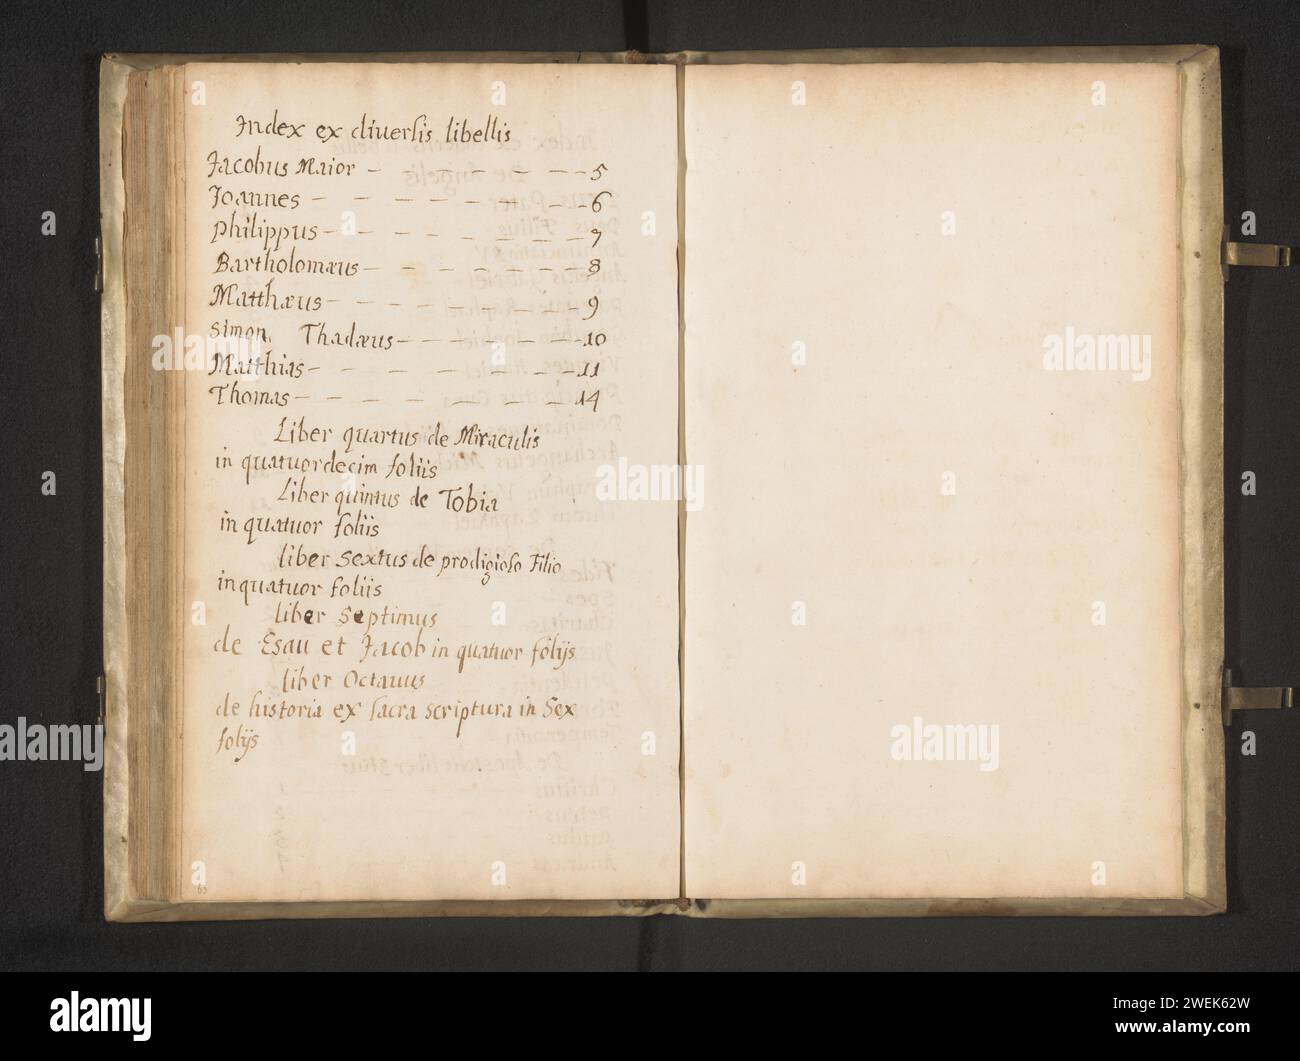 Index ex diuersis libellis
Jacobus Maior - - - - - - - 5
Joannes - - - - - - - - 6
Philippus - - - - - - - - 7
Bartholomæus - - - - - - - 8
Matthæus - - - - - - - - 9
Simon, Thadæus - - - - - - - 10
Matthias - - - - - - - - 11
Thomas - - - - - - - - 14
Liber quartus de Miraculis
in quatuordecim foliis
Liber quintus de Tobia
in quatuor foliis
liber Sextus de prodigioso Filio
in quatuor foliis
liber Septimus
de Esau et Jacob in quatuor folijs
liber Octauus
de historia ex sacra scriptura in Sex
folijs
63
alamy
Image ID: 2WEK62W
www.alamy.com